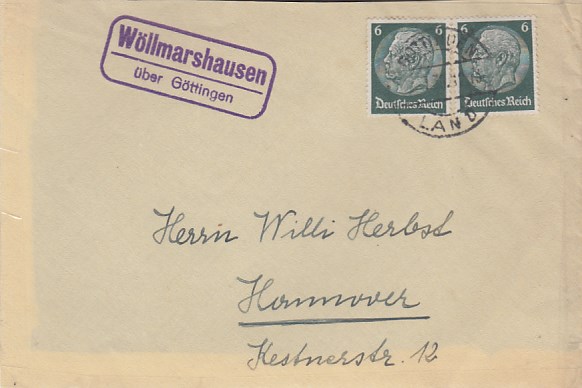 Wöllmarshausen
über Göttingen
6 6 6 6
Deutsches Reich Deutsches Reich
LAND
Herrn Willi Herbst
Hannover
Kestnerstr. 12